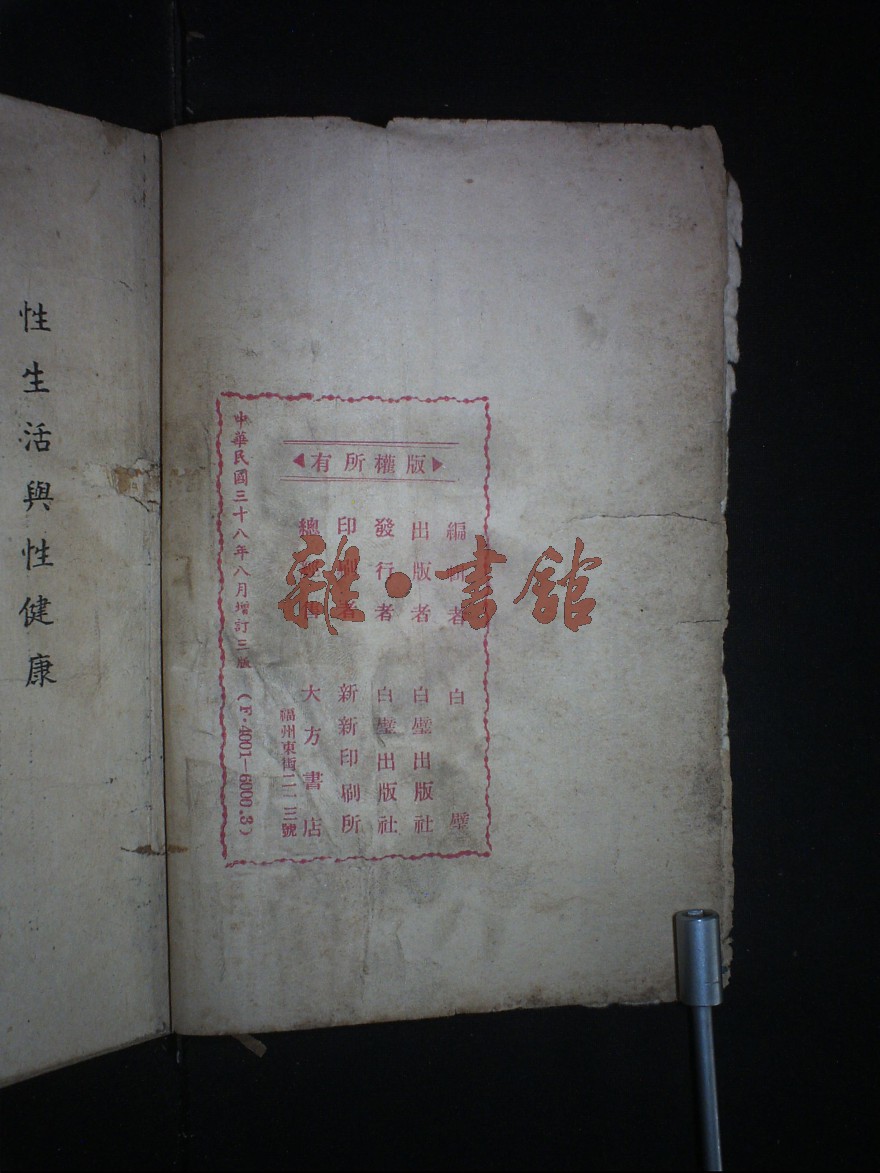 版權所有
編輯者 白璧
出版者 白璧出版社
發行者 白璧出版社
印刷者 新新印刷所
總經售 大方書店
福州東街二一三號
中華民國三十八年八月增訂三版 (F·4001—6000.3)
性生活與性健康
雜·書館